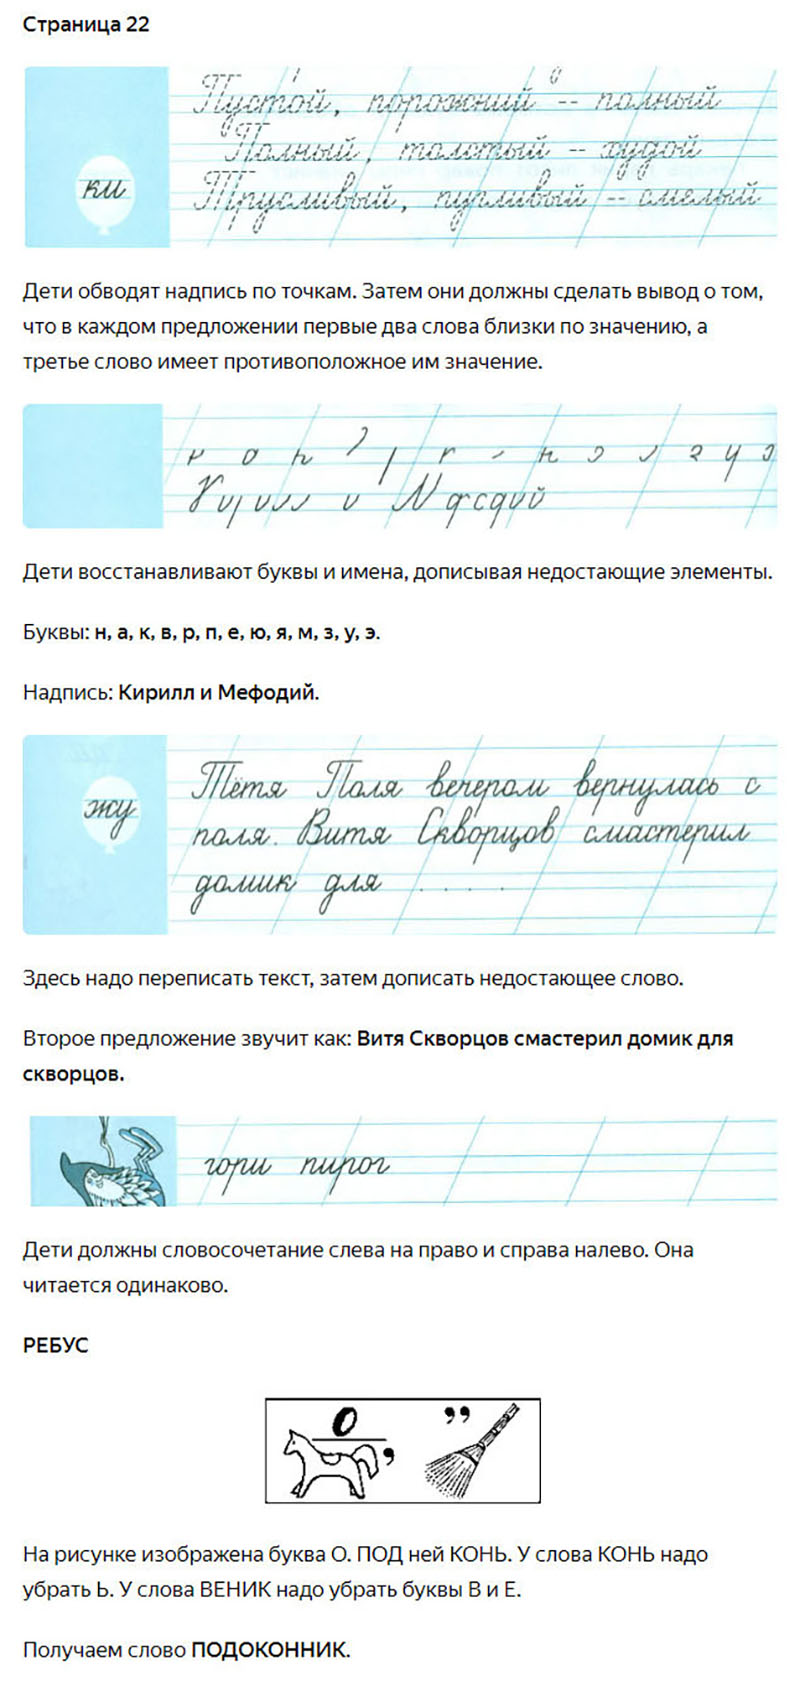 Страница 22
Пустой, порожний -- полный
Полный, толстый -- худой
ки
Трусливый, пугливый -- смелый
Дети обводят надпись по точкам. Затем они должны сделать вывод о том,
что в каждом предложении первые два слова близки по значению, а
третье слово имеет противоположное им значение.
Дети восстанавливают буквы и имена, дописывая недостающие элементы.
Буквы: н, а, к, в, р, п, е, ю, я, м, з, у, э.
Надпись: Кирилл и Мефодий.
Тётя Поля вечером вернулась с
жу
поля. Витя Скворцов смастерил
домик для . . . .
Здесь надо переписать текст, затем дописать недостающее слово.
Второе предложение звучит как: Витя Скворцов смастерил домик для
скворцов.
гори пирог
Дети должны словосочетание слева на право и справа налево. Она
читается одинаково.
РЕБУС
О ,,
,
На рисунке изображена буква О. ПОД ней КОНЬ. У слова КОНЬ надо
убрать Ь. У слова ВЕНИК надо убрать буквы В и Е.
Получаем слово ПОДОКОННИК.